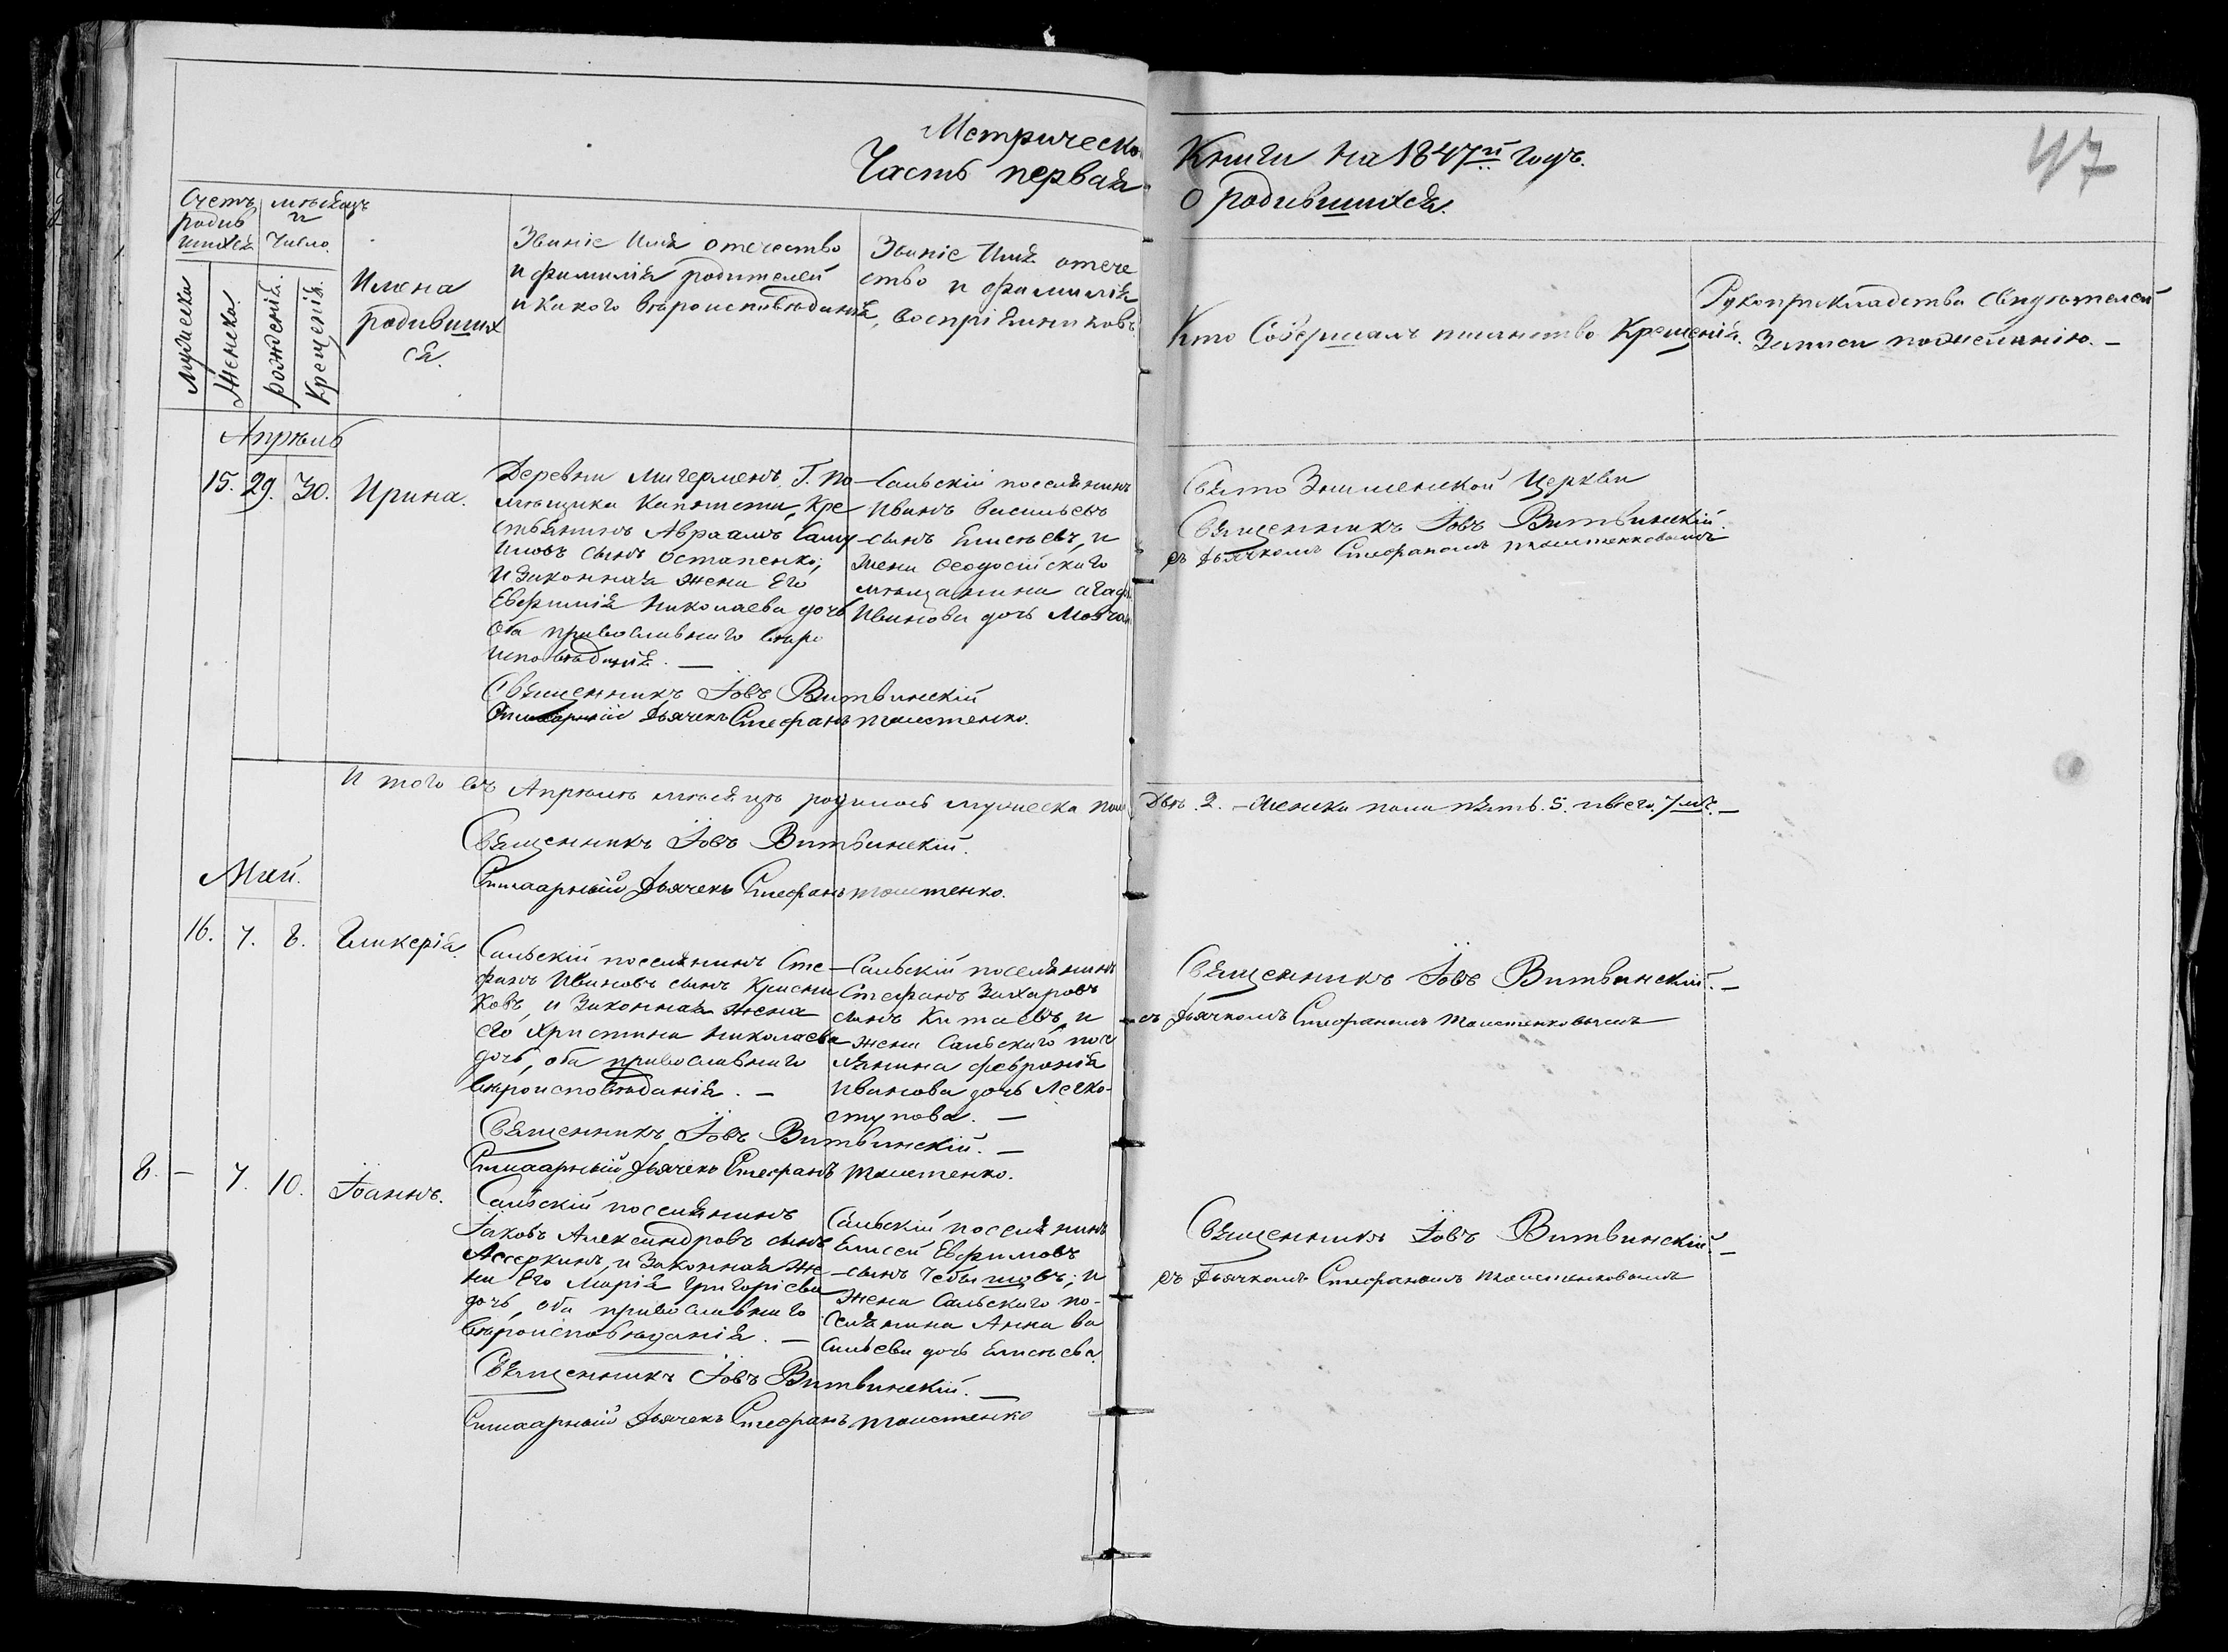 Метрическо
Часть первая
Книги на 1847й годъ.
О родившихся.
47
Счетъ родив шихся
мѣсяцъ и Число.
Мужеска
Женска.
рожденія.
Крещенія.
Имена
родивших
ся.
Званіе Имя отечество
и фамилія родителей
и какого вѣроисповѣданія,
Званіе Имя отече
ство и фамилія
воспріемниковъ
Кто Совершалъ таинство Крещенія.
Рукоприкладства свидѣтелей
Записи пожеланію. —
Апрѣль
15. 29. 30. Ирина.
Деревни Мигерменъ, Г. По
мѣщика Капнисти, Кре
стьянинъ Авраамъ Саму
иловъ сынъ Остапенко,
и Законная жена Его
Евфимія Николаева дочь
Оба православнаго вѣро
исповѣданія. —
Священникъ Іовъ Витвинскій
Дьячекъ Стефанъ
— Сальскій поселянинъ
Иванъ Васильевъ
— сынъ Елисѣевъ, и
жена Ѳеодосійскаго
мѣщанина Агаф
Иванова дочь Мовчан
Свято Знаменской Церкви
Священникъ Іовъ Витвинскій.
съ Дьячкомъ Стефаномъ
И того въ Апрѣлѣ мѣсяцѣ родилось мужеска пола
Два. 2. — Женска пола пять. 5. и всего. 7мь. —
Священникъ Іовъ Витвинскій.
Дьячекъ Стефанъ
Май.
16. 7. 8. Гликерія.
Сальскій поселянинъ Сте
фанъ Ивановъ сынъ Красни
ковъ, и Законная жена
его Христина Николаева
дочь, оба православнаго
вѣроисповѣданія. —
Священникъ Іовъ Витвинскій. —
Дьячекъ Стефанъ
— Сальскій поселянинъ
Стефанъ Захаровъ
сынъ Китаевъ, и
жена Сальскаго посе
лянина Февронія
Иванова дочь Легко-
ступова. —
Священникъ Іовъ Витвинскій. —
съ Дьячкомъ Стефаномъ
8. — 7. 10. Іоаннъ.
Сальскій поселянинъ
Іаковъ Александровъ сынъ
и Законная же
на Его Марія Григоріева
дочь, оба православнаго
вѣроисповѣданія. —
Священникъ Іовъ Витвинскій. —
Дьячекъ Стефанъ
Сальскій поселянинъ
Елисей Евфимовъ
— сынъ Чебышовъ; и
Жена Сальскаго по-
селянина Анна Ва
сильева дочь Елисѣева.
Священникъ Іовъ Витвинскій. —
съ Дьячкомъ Стефаномъ